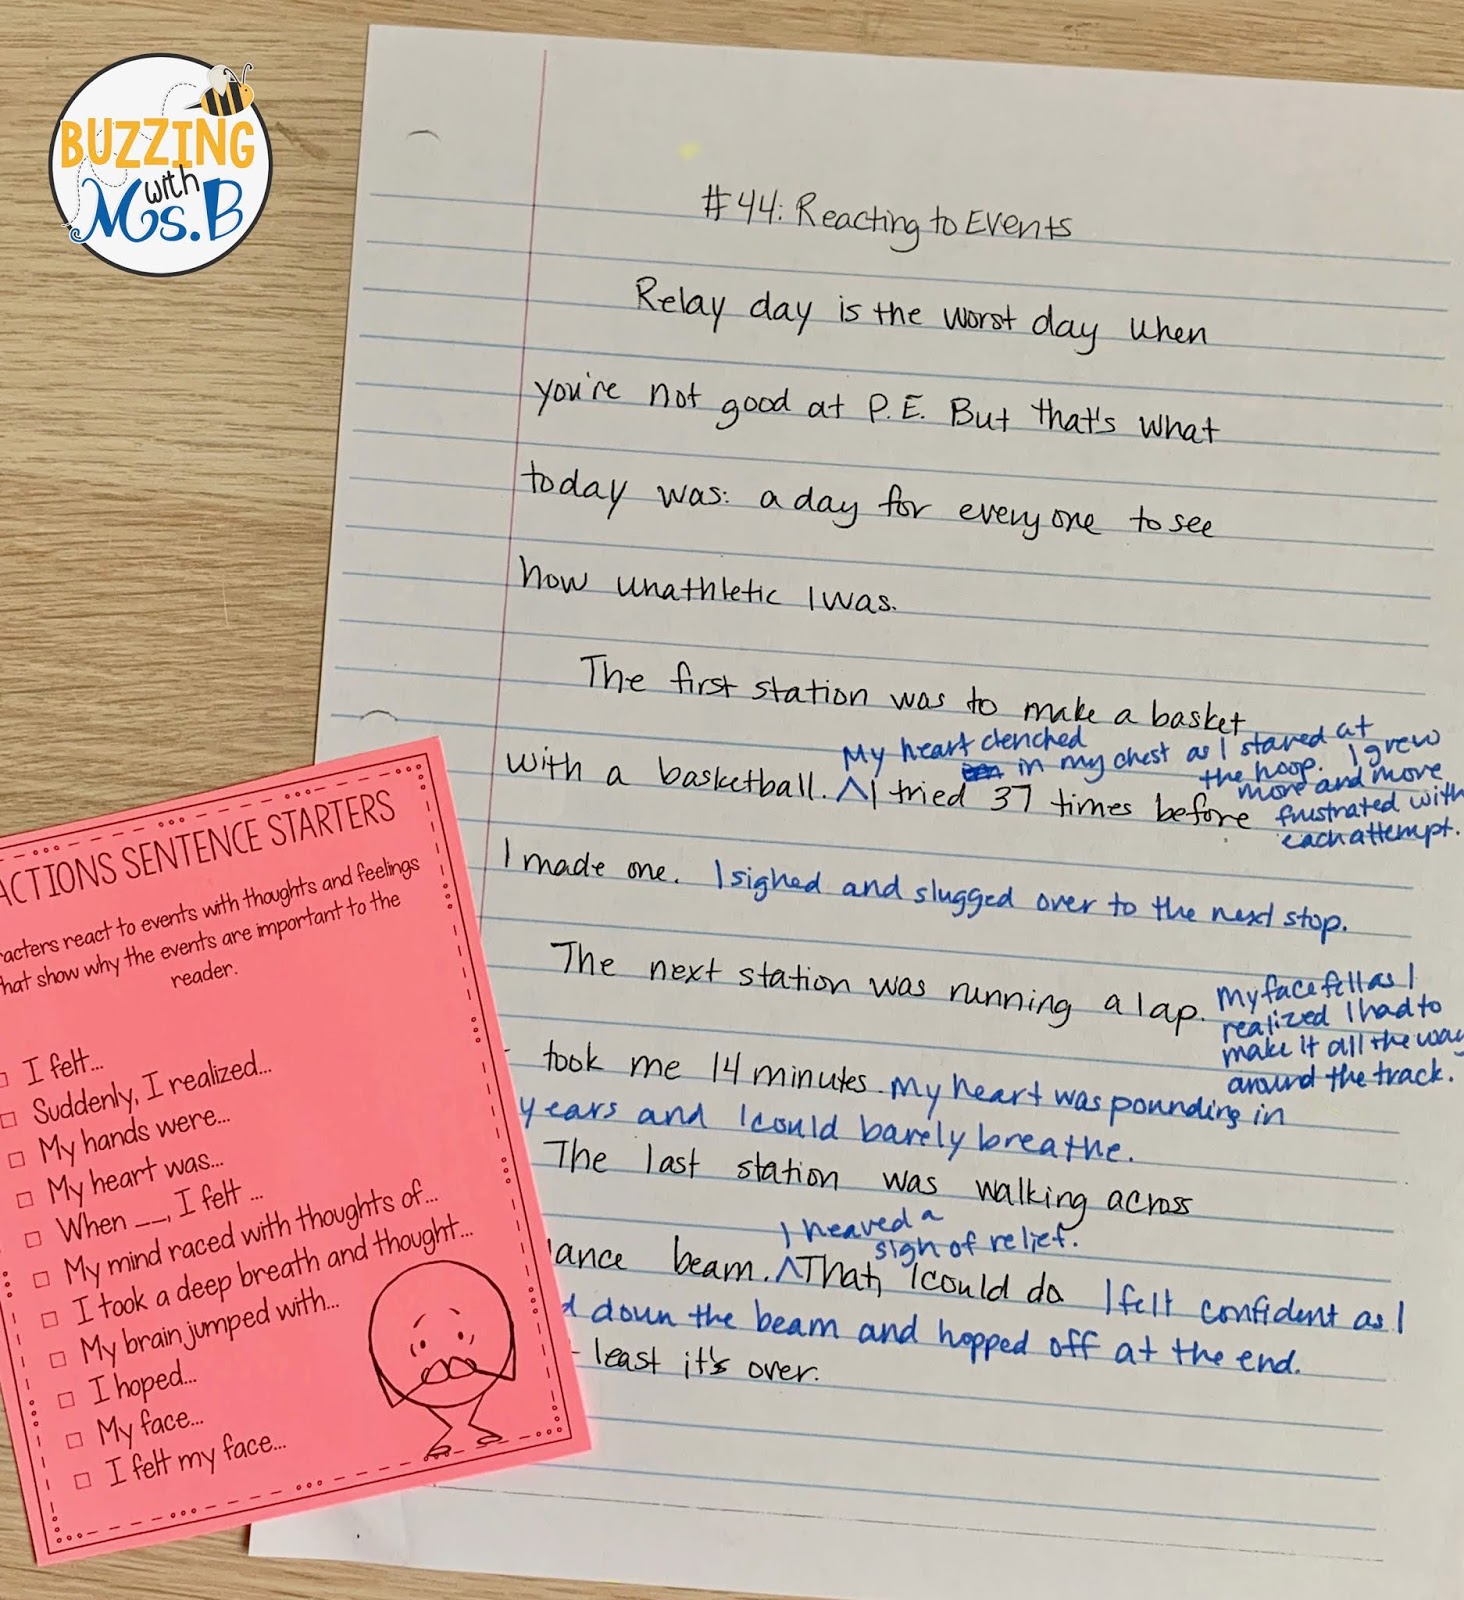 BUZZING
with
Ms. B
#44: Reacting to Events
Relay day is the worst day when
you're not good at P.E. But that's what
today was: a day for everyone to see
how unathletic I was.
The first station was to make a basket
My heart clenched
in my chest as I stared at
the hoop. I grew
more and more
frustrated with
each attempt.
with a basketball. ^I tried 37 times before
I made one. I sighed and slugged over to the next stop.
The next station was running a lap.
My face fell as I
realized I had to
make it all the way
around the track.
took me 14 minutes. My heart was pounding in
years and I could barely breathe.
The last station was walking across
I heaved a
sign of relief.
lance beam. ^That, I could do I felt confident as I
d down the beam and hopped off at the end.
least it's over.
ACTIONS SENTENCE STARTERS
racters react to events with thoughts and feelings
hat show why the events are important to the
reader.
I felt...
Suddenly, I realized...
My hands were...
My heart was...
When __, I felt ...
My mind raced with thoughts of...
I took a deep breath and thought...
My brain jumped with...
I hoped...
My face...
I felt my face...